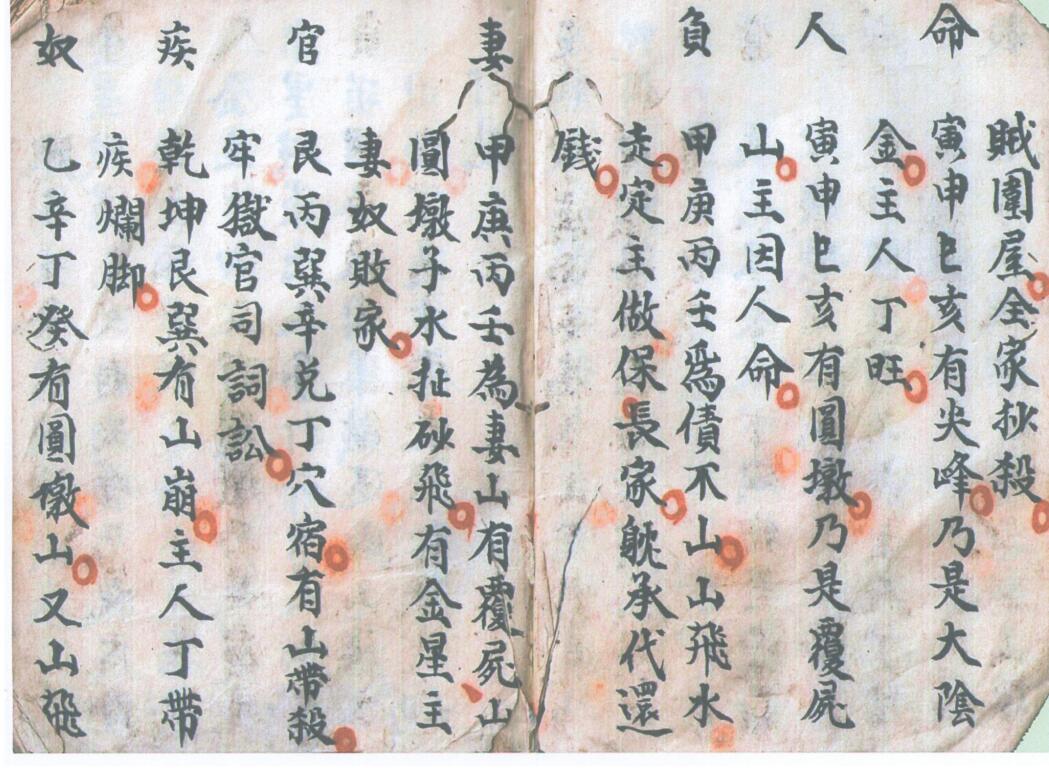 賊圍屋全家抄殺
命
寅申巳亥有尖峰乃是大陰
金主人丁旺
人
寅申巳亥有圓墩乃是覆屍
山主因人命
負
甲庚丙壬爲債不山山飛水
走定主做保長家躭承代還
錢
妻
甲庚丙壬為妻山有覆屍山
圓墩子水扯砂飛有金星主
妻奴敗家
官
艮丙巽辛兌丁穴宿有山帶殺
牢獄官司詞訟
疾
乾坤艮巽有山崩主人丁帶
疾爛脚
奴
乙辛丁癸有圓墩山又山飛